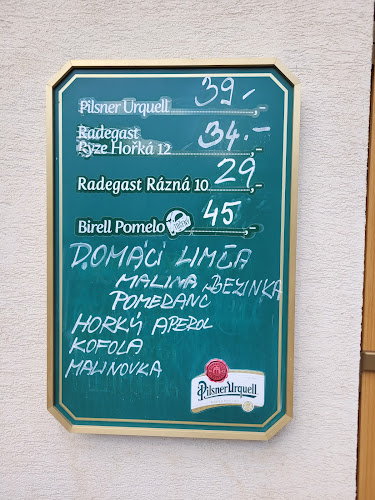 Pilsner Urquell 39,-
Radegast
Ryze Hořká 12 34,-
Radegast Rázná 10 29,-
Birell Pomelo 45,-
DOMÁCÍ LIMČA
MALINA BEZINKA
POMERANČ
HORKÝ APEROL
KOFOLA
MALINOVKA
Pilsner Urquell